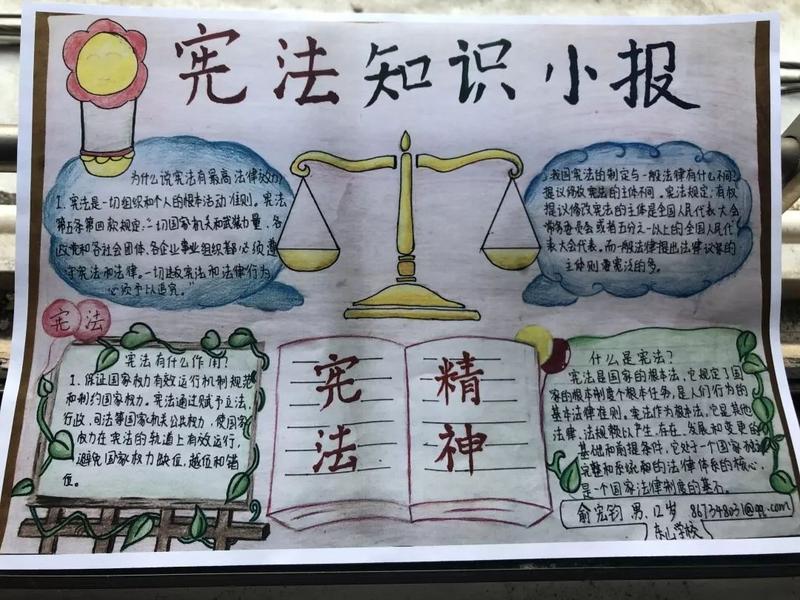 宪法知识小报
为什么说宪法有最高法律效力
1、宪法是一切组织和个人的根本活动准则。宪法
第五条第四款规定:"一切国家机关和武装力量、各
政党和各社会团体、各企业事业组织都必须遵
守宪法和法律。一切违反宪法和法律行为
必须予以追究。"
我国宪法的制定与一般法律有什么不同?
提议修改宪法的主体不同。宪法规定,有权
提议修改宪法的主体是全国人民代表大会
常务委员会或者五分之一以上的全国人民代
表大会代表。而一般法律提出法律议案的
主体则要宽泛的多。
宪法
宪法有什么作用?
1、保证国家权力有效运行机制规范
和制约国家权力。宪法通过赋予立法、
行政、司法等国家机关公共权力,使国家
权力在宪法的轨道上有效运行,
避免国家权力缺位、越位和错
位。
宪法
精神
什么是宪法?
宪法是国家的根本法,它规定了国
家的根本制度和根本任务,是人们行为的
基本法律准则。宪法作为根本法,它是其他
法律、法规赖以产生、存在、发展和变更的
基础和前提条件,它处于一个国家
完整和系统的法律体系的核心,
是一个国家法律制度的基石。
俞宏钧 男、12岁 867348031@qq.com
东山学校